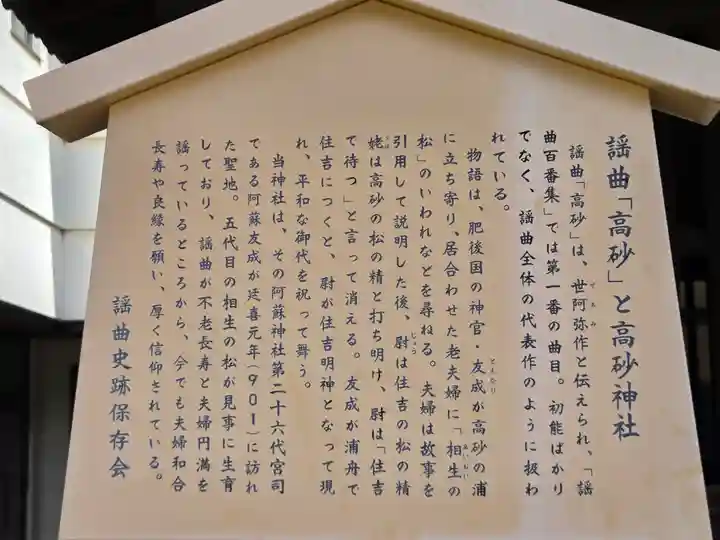 謡曲「高砂」と高砂神社
謡曲「高砂」は、世阿弥作と伝えられ、「謡
曲百番集」では第一番の曲目。初能ばかり
でなく、謡曲全体の代表作のように扱わ
れている。
物語は、肥後国の神官・友成が高砂の浦
に立ち寄り、居合わせた老夫婦に「相生の
松」のいわれなどを尋ねる。夫婦は故事を
引用して説明した後、尉は住吉の松の精
姥は高砂の松の精と打ち明け、尉は「住吉
て待つ」と言って消える。友成が浦舟で
住吉につくと、尉が住吉明神となって現
れ、平和な御代を祝って舞う。
当神社は、その阿蘇神社第二十六代宮司
である阿蘇友成が延喜元年(901)に訪れ
た聖地。五代目の相生の松が見事に生育
しており、謡曲が不老長寿と夫婦円満を
謡っているところから、今でも夫婦和合
長寿や良縁を願い、厚く信仰されている。
謡曲史跡保存会